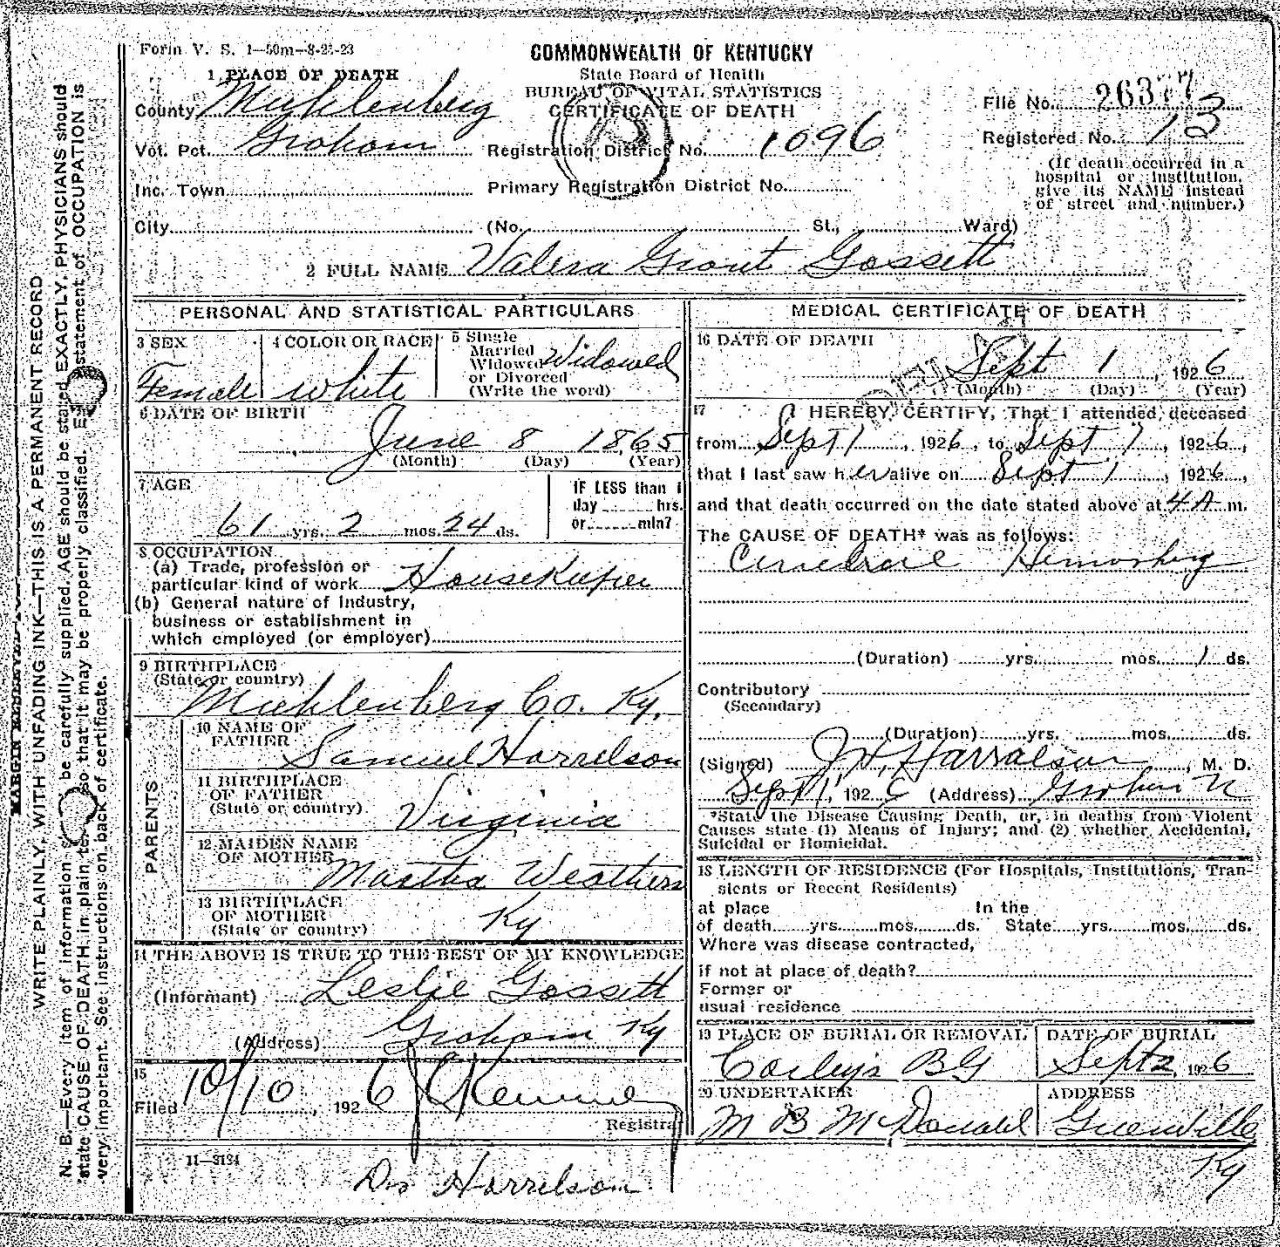 Form V. S. 1—50m—8-21-23
COMMONWEALTH OF KENTUCKY
State Board of Health
BUREAU OF VITAL STATISTICS
CERTIFICATE OF DEATH
File No. 26377
Registered No. 13
(If death occurred in a
hospital or institution,
give its NAME instead
of street and number.)
1 PLACE OF DEATH
County Muhlenberg
Vot. Pct. Graham
Registration District No. 1096
Inc. Town
Primary Registration District No.
City (No. St., Ward)
2 FULL NAME Valera Grant Gossett
PERSONAL AND STATISTICAL PARTICULARS
3 SEX
Female
4 COLOR OR RACE
White
5 Single
Married
Widowed
or Divorced
(Write the word)
Widowed
6 DATE OF BIRTH
June 8 1865
(Month) (Day) (Year)
7 AGE
61 yrs. 2 mos. 24 ds.
IF LESS than 1
day hrs.
or min?
8 OCCUPATION
(a) Trade, profession or
particular kind of work Housekeeper
(b) General nature of Industry,
business or establishment in
which employed (or employer)
9 BIRTHPLACE
(State or country)
Muhlenberg Co. Ky.
PARENTS
10 NAME OF
FATHER
Samuel Harrelson
11 BIRTHPLACE
OF FATHER
(State or country)
Virginia
12 MAIDEN NAME
OF MOTHER
Martha Weathers
13 BIRTHPLACE
OF MOTHER
(State or country)
Ky
14 THE ABOVE IS TRUE TO THE BEST OF MY KNOWLEDGE
(Informant) Leslie Gossett
(Address) Graham Ky
15
Filed 10/10, 1926
Registrar
11—3134
Drs Harrelson
MEDICAL CERTIFICATE OF DEATH
16 DATE OF DEATH
Sept 1, 1926
(Month) (Day) (Year)
17 I HEREBY CERTIFY, That I attended deceased
from Sept 1, 1926, to Sept 1, 1926,
that I last saw her alive on Sept 1, 1926,
and that death occurred on the date stated above at 4 A m.
The CAUSE OF DEATH* was as follows:
(Duration) yrs. mos. 1 ds.
Contributory
(Secondary)
(Duration) yrs. mos. ds.
(Signed) J. W. Harralson, M. D.
Sept 1, 1926 (Address) Graham
*State the Disease Causing Death, or, in deaths from Violent
Causes state (1) Means of Injury; and (2) whether Accidental,
Suicidal or Homicidal.
18 LENGTH OF RESIDENCE (For Hospitals, Institutions, Tran-
sients or Recent Residents)
at place In the
of death yrs. mos. ds. State yrs. mos. ds.
Where was disease contracted,
if not at place of death?
Former or
usual residence
19 PLACE OF BURIAL OR REMOVAL
DATE OF BURIAL
BG
Sept 2, 1926
20 UNDERTAKER
M B McDonald
ADDRESS
Greenville
Ky
WRITE PLAINLY, WITH UNFADING INK—THIS IS A PERMANENT RECORD
N. B.—Every item of information be carefully supplied. AGE should be stated EXACTLY. PHYSICIANS should
state CAUSE OF DEATH in plain so that it may be properly classified. statement of OCCUPATION is
very important. See instructions on back of certificate.